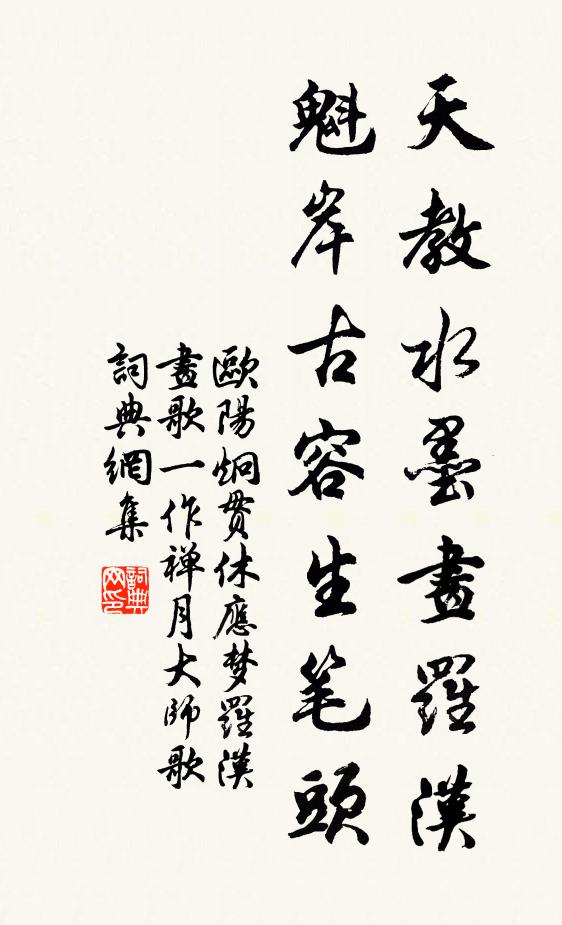 天教水墨畫羅漢
魁岸古容生笔頭
歐陽炯貫休應梦羅漢
畫歌一作禅月大師歌
詞典網集
詞典网印